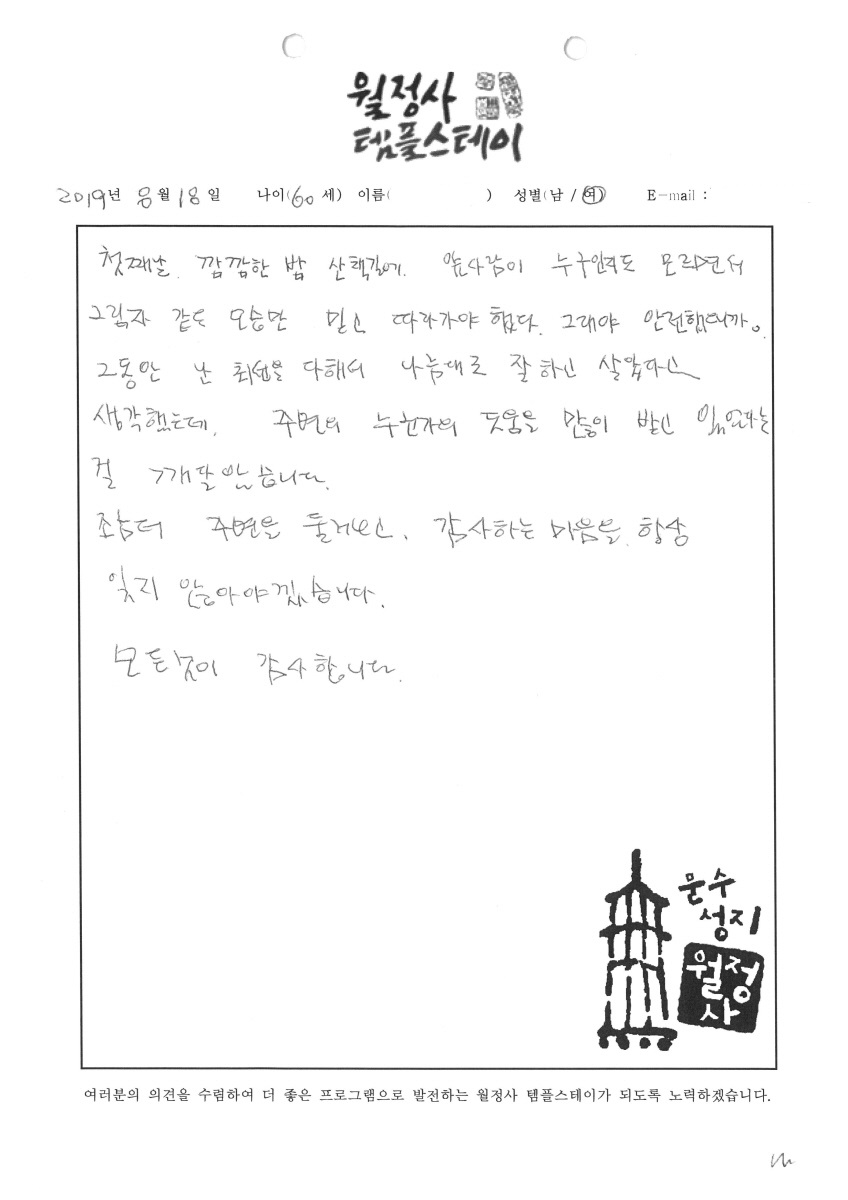 월정사
템플스테이
2019년 8월 18일 나이(60세) 이름( ) 성별(남 / 여) E-mail :
첫째날, 깜깜한 밤 산책길에. 앞사람이 누구인지도 모르면서
그림자 같은 모습만 믿고 따라가야 했다. 그래야 안전했으니까.
그동안 난 최선을 다해서 나름대로 잘 하고 살았다고
생각했는데, 주변의 누군가의 도움을 많이 받고 있었다는
걸 깨달았습니다.
조금더 주변을 둘러보고, 감사하는 마음을 항상
잊지 않아야겠습니다.
모든것이 감사합니다.
문수
성지
월정
사
여러분의 의견을 수렴하여 더 좋은 프로그램으로 발전하는 월정사 템플스테이가 되도록 노력하겠습니다.